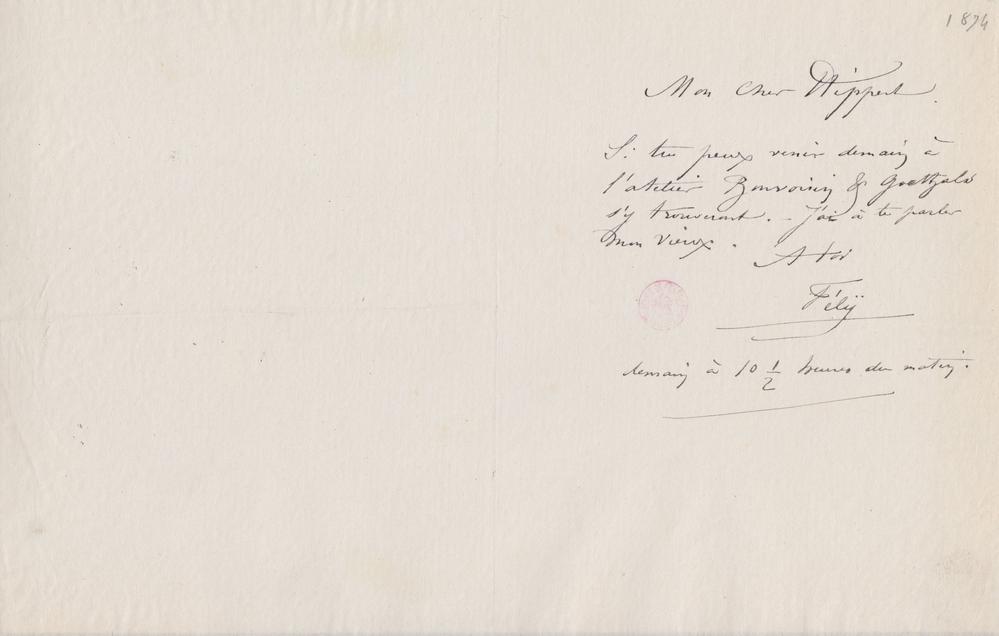 1874
Mon Cher Hippert.
Si tu peux venir demain à
l'atelier Bonvoisin & Goethals
s'y trouveront. – J'ai à te parler
mon vieux.
A toi
Féliÿ
demain à 10 1/2 heures du matin.